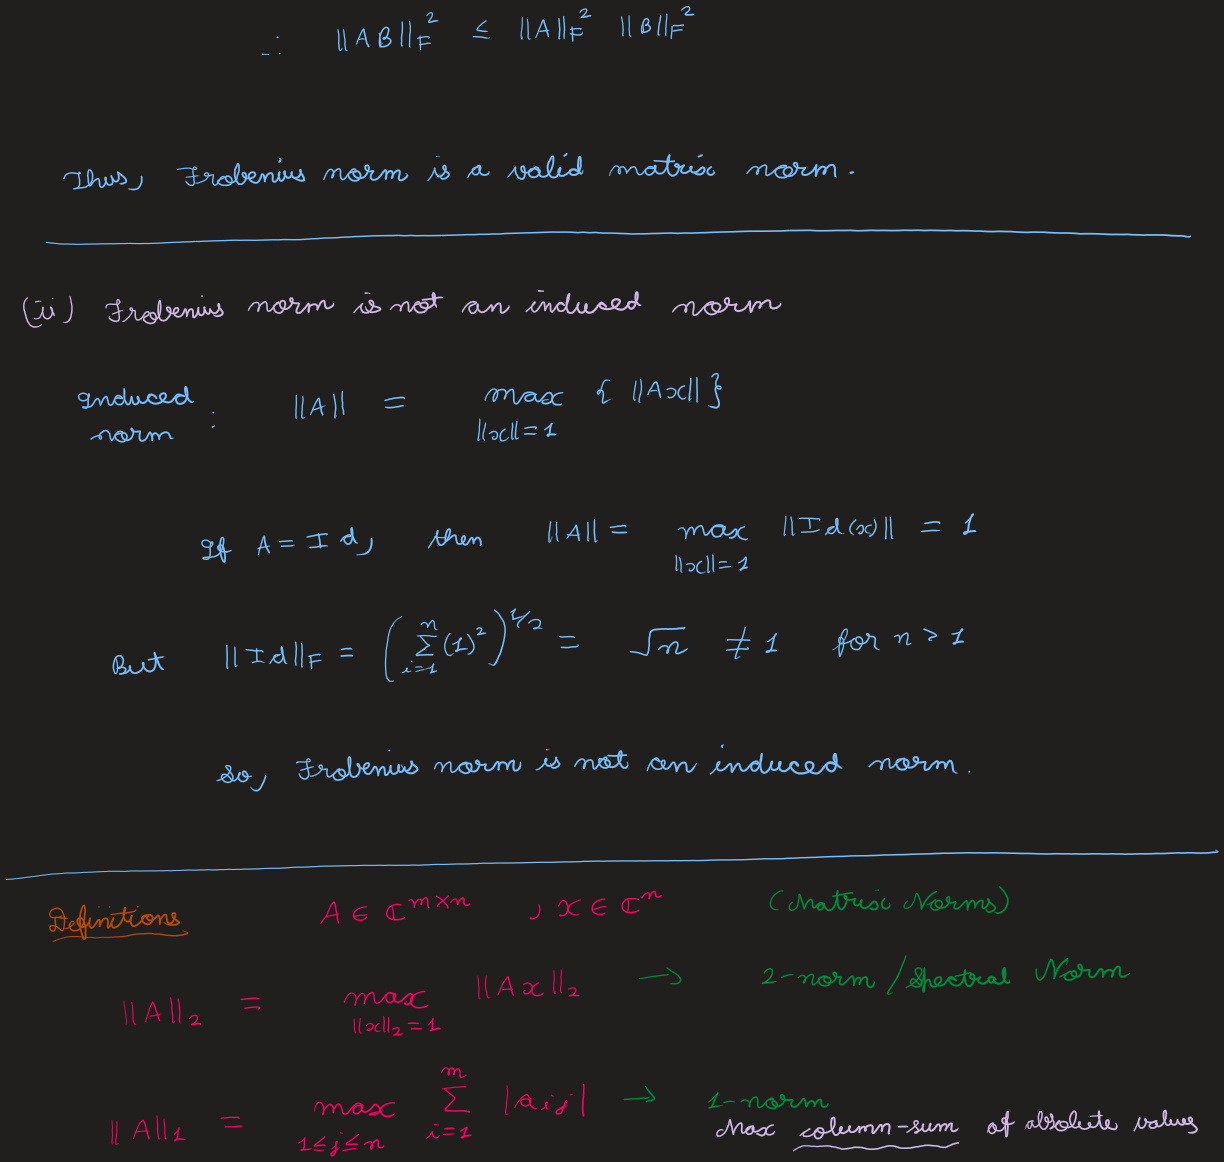 ∴ ||AB||_F² ≤ ||A||_F² ||B||_F²
Thus, Frobenius norm is a valid matrix norm.
(ii) Frobenius norm is not an induced norm
Induced norm : ||A|| = max_{||x||=1} { ||Ax|| }
If A = Id, then ||A|| = max_{||x||=1} ||Id(x)|| = 1
But ||Id||_F = ( Σ_{i=1}^{n} (1)² )^{1/2} = √n ≠ 1 for n > 1
So, Frobenius norm is not an induced norm.
Definitions A ∈ ℂ^{m×n} , x ∈ ℂ^n (Matrix Norms)
||A||₂ = max_{||x||₂=1} ||Ax||₂ → 2-norm / Spectral Norm
||A||₁ = max_{1≤j≤n} Σ_{i=1}^{m} |a_{ij}| → 1-norm
Max column-sum of absolute values